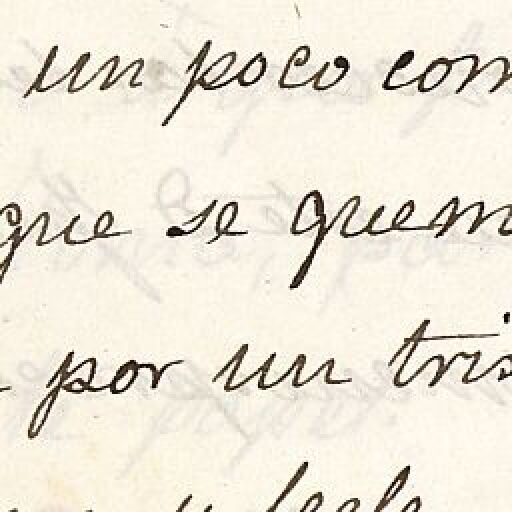 un poco com
que se quem
por un tris